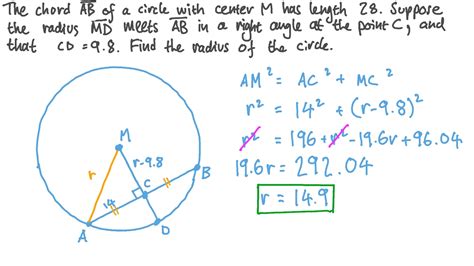 The chord AB of a circle with center M has length 28. Suppose
the radius MD meets AB in a right angle at the point C, and
that CD = 9.8. Find the radius of the circle.
AM² = AC² + MC²
r² = 14² + (r-9.8)²
r² = 196 + r² - 19.6r + 96.04
19.6r = 292.04
r = 14.9
M
r
r-9.8
C
B
14
A
D